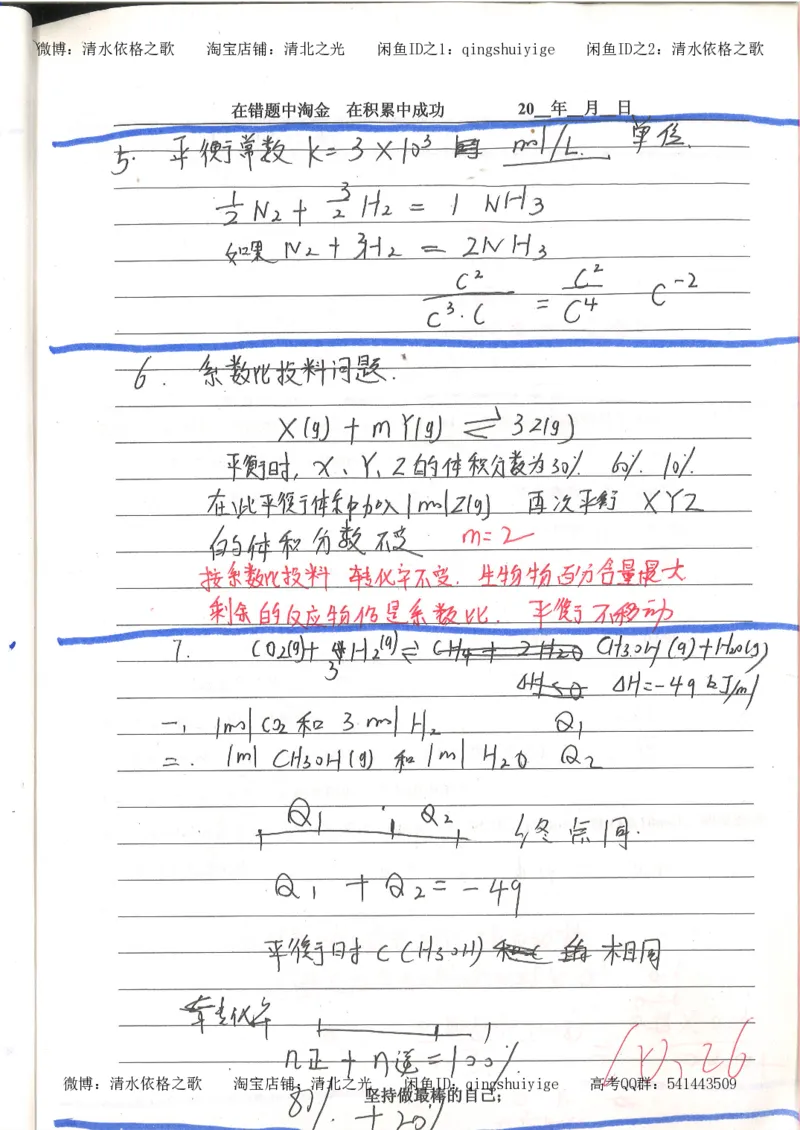 微博：清水依格之歌 淘宝店铺：清北之光 闲鱼ID之1：qingshuiyige 闲鱼ID之2：清水依格之歌
在错题中淘金 在积累中成功 20__年__月__日
5. 平衡常数 K=3×10³ mol/L 单位.
1/2 N₂ + 3/2 H₂ = 1 NH₃
如果 N₂ + 3H₂ = 2NH₃
C²/(C³·C) = C²/C⁴ C⁻²
6. 系数比投料问题.
X(g) + mY(g) ⇌ 3Z(g)
平衡时, X、Y、Z的体积分数为30% 60% 10%.
在此平衡体系中加入1molZ(g) 再次平衡 XYZ
的体积分数不变 m=2
按系数比投料 转化率不变. 生物物百分含量最大
剩余的反应物仍是系数比. 平衡不移动
7. CO₂(g)+ 3H₂(g) ⇌ CH₃OH(g)+H₂O(g)
ΔH=-49kJ/mol
一、1mol CO₂ 和 3mol H₂ Q₁
二、1mol CH₃OH(g) 和 1mol H₂O Q₂
Q₁ Q₂ 终点同.
Q₁ + Q₂ = -49
平衡时 C(CH₃OH) 相同
转化率
n正 + n逆 = 100%
微博：清水依格之歌 淘宝店铺：清北之光 闲鱼ID之1：qingshuiyige 高考QQ群：541443509
坚持做最棒的自己；
80% + 20%